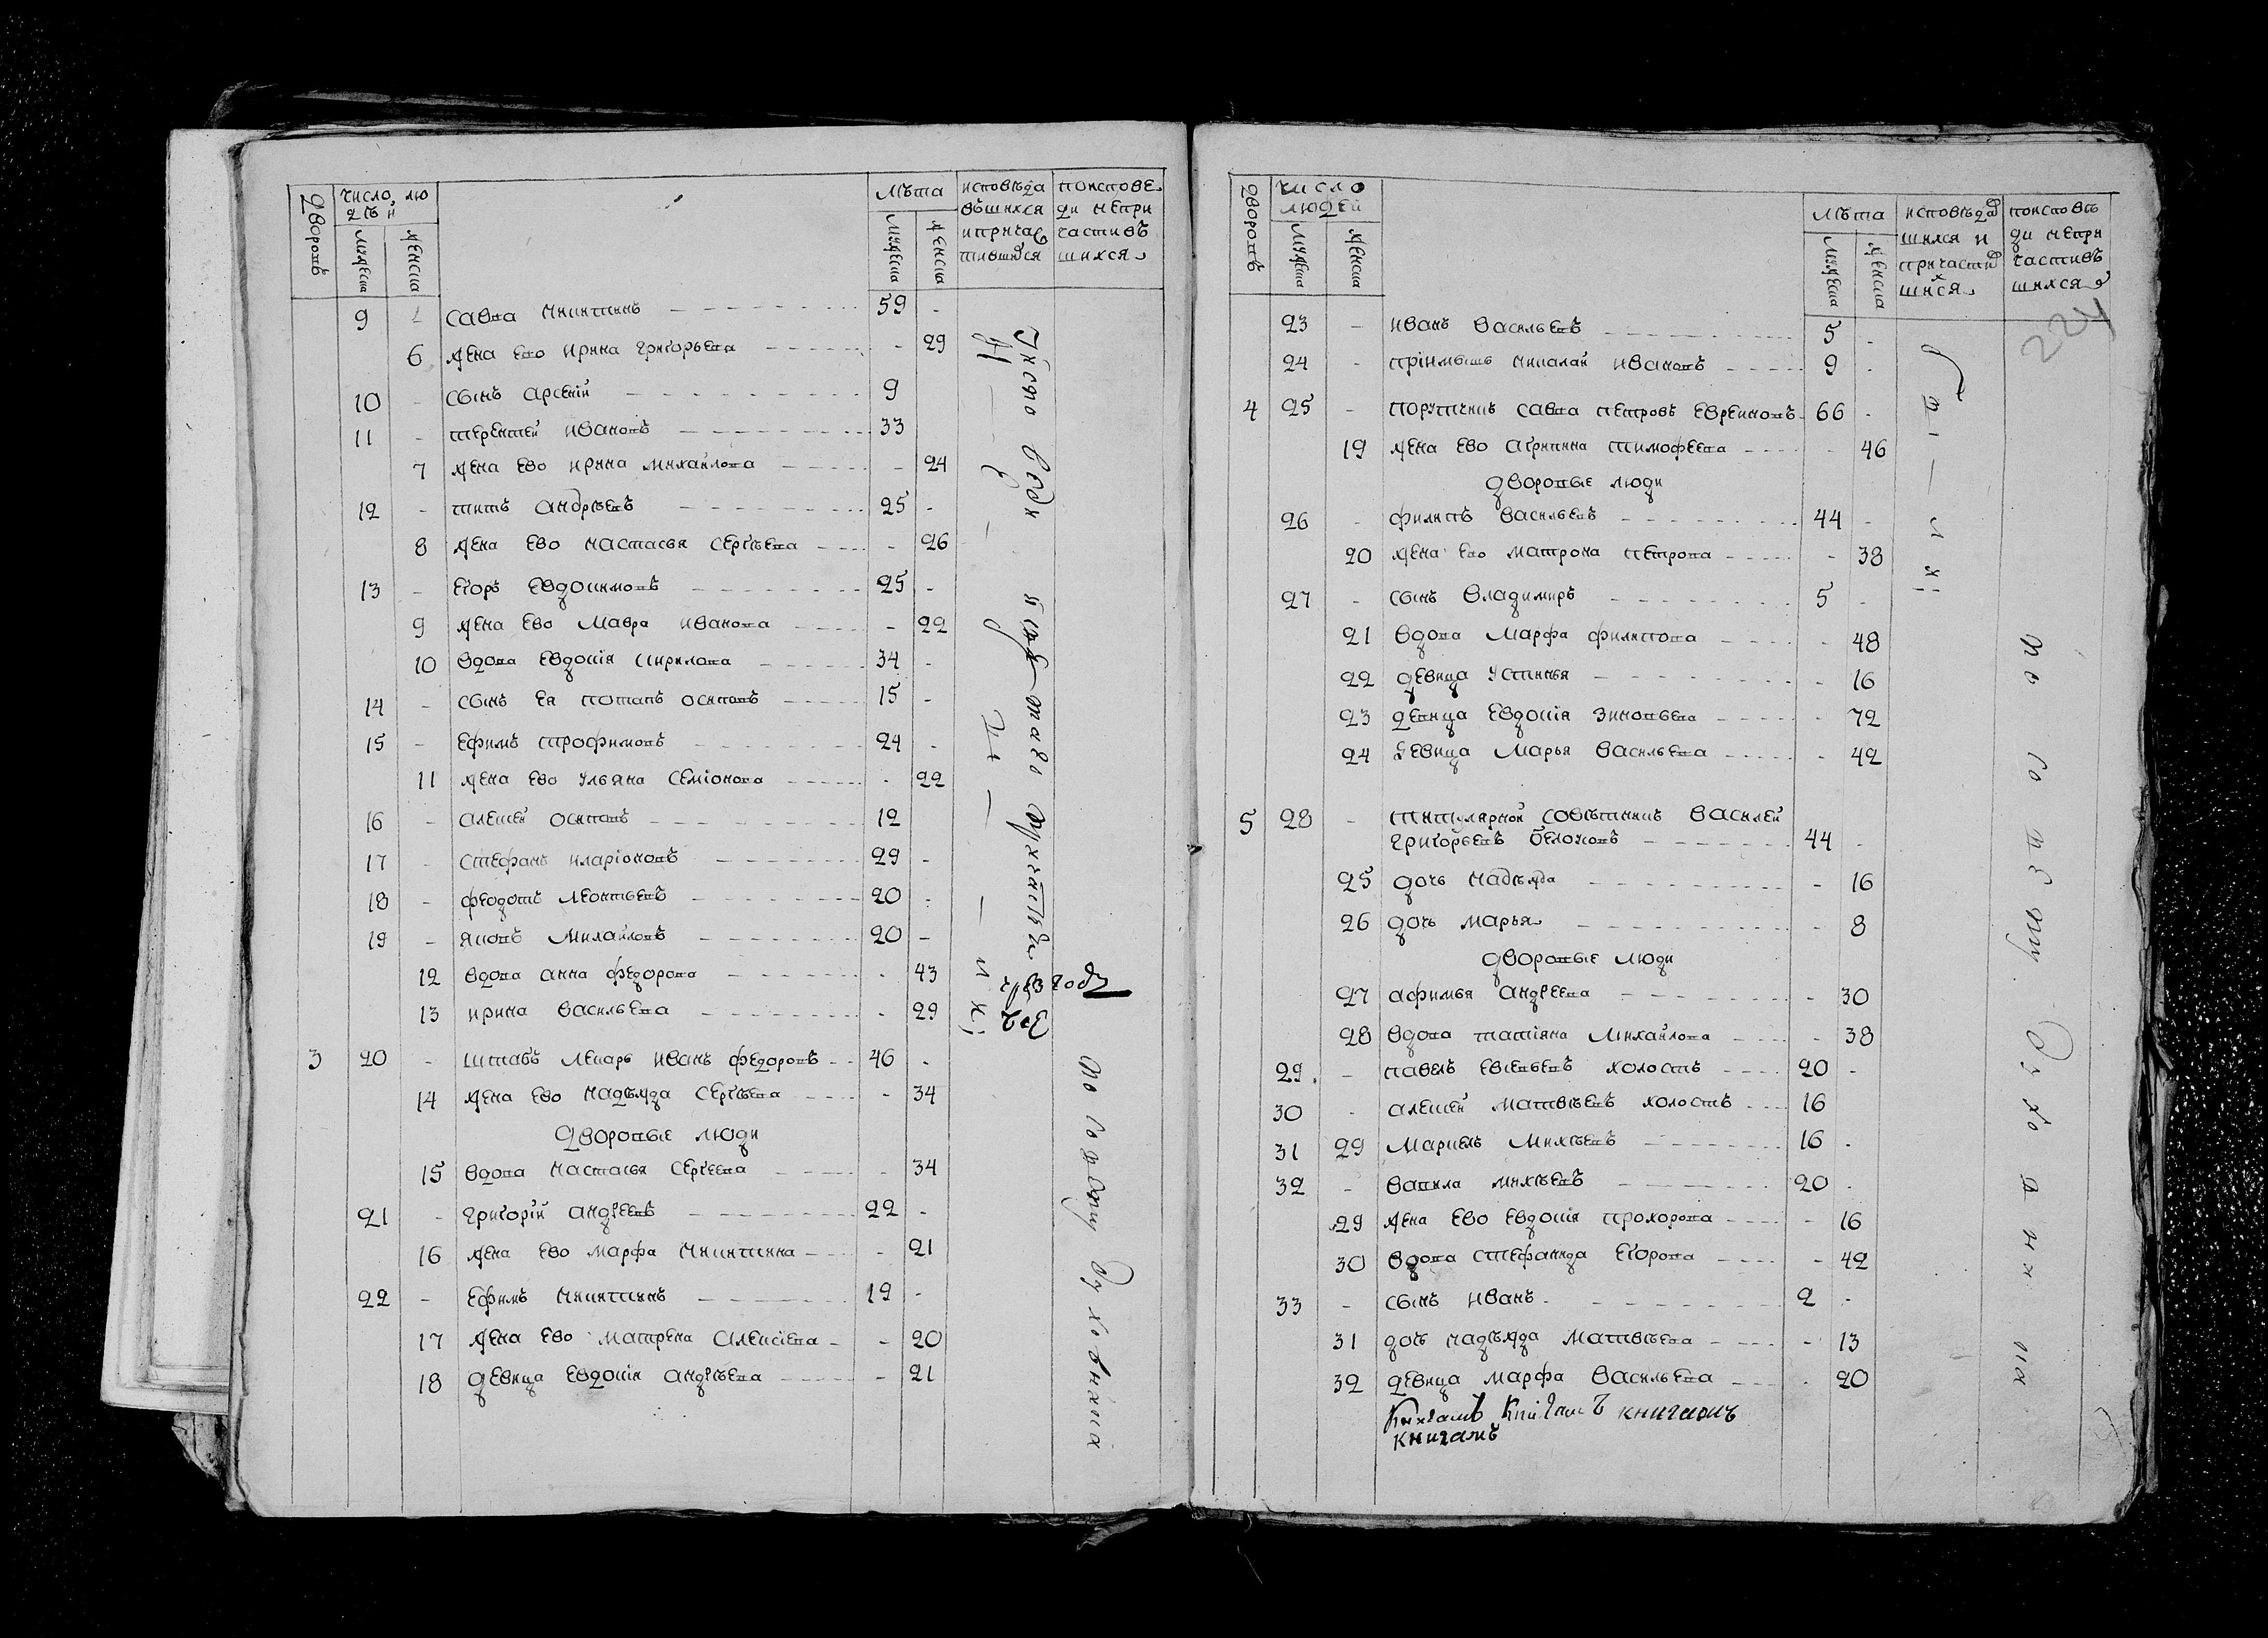 дворовъ
число лю
дѣй
мужеска
женска
лѣта
мужеска
женска
исповѣда
вшихся
и причас
тившихся
по исповѣ
ди непри
частивъ
шихся
9 савва никитинъ 59 -
6 жена ево ирина григорьева - 29
10 - сынъ арсений 9
11 - терентей ивановъ 33
7 жена ево ирина михайлова - 24
12 - титъ андрѣевъ 25 -
8 жена ево настасья сергѣева - 26
13 - егоръ евдокимовъ 25 -
9 жена ево мавра иванова - 22
10 вдова евдокія кирилова 34 -
14 - сынъ ея потапъ осиповъ 15 -
15 - ефимъ трофимовъ 24 -
11 жена ево ульяна семіонова - 22
16 - алексей осиповъ 12
17 - стефанъ иларіоновъ 29 -
18 - феодотъ леонтьевъ 20 -
19 - яковъ михайловъ 20 -
12 вдова анна федорова - 43
13 ирина васильева - 29
3 20 - штабъ лекарь иванъ федоровъ 46 -
14 жена ево надѣжда сергѣева - 34
дворовые люди
15 вдова настасья сергеева - 34
21 - григорій андреевъ 22 -
16 жена ево марфа никитина - 21
22 - ефимъ никитинъ 19 -
17 жена ево матрена алексіева - 20
18 девица евдокія андрѣева - 21
дворовъ
число
людей
мужеска
женска
лѣта
мужеска
женска
исповѣдав
шихся и
причастив
шихся
по исповѣ
ди непри
частивъ
шихся
224
23 - иванъ васильевъ 5 -
24 - пріимышъ николай ивановъ 9 -
4 25 - порутчикъ савва петровъ евреиновъ 66 -
19 жена ево агрипина тимофеева - 46
дворовые люди
26 - филипъ васильевъ 44 -
20 жена ево матрона петрова - 38
27 - сынъ владимиръ 5 -
21 вдова марфа филипова - 48
22 девица устинья - 16
23 девица евдокія зиновьева - 72
24 девица марья васильева - 42
5 28 - титулярной совѣтникъ василей
григорьевъ 44 -
25 дочь надѣжда - 16
26 дочь марья - 8
дворовые люди
27 афимья андреева - 30
28 вдова татіяна михайлова - 38
29 - павелъ евсевьевъ холостъ 20 -
30 - алексей матвѣевъ холостъ 16
31 29 маркелъ михѣевъ 16 -
32 - вавила михѣевъ 20 -
29 жена ево евдокія прохорова - 16
30 вдова стефанида егорова - 42
33 - сынъ иванъ 2 -
31 дочь надѣжда матвѣева - 13
32 девица марфа васильева - 20
книгамъ книгамъ книгамъ
книгамъ